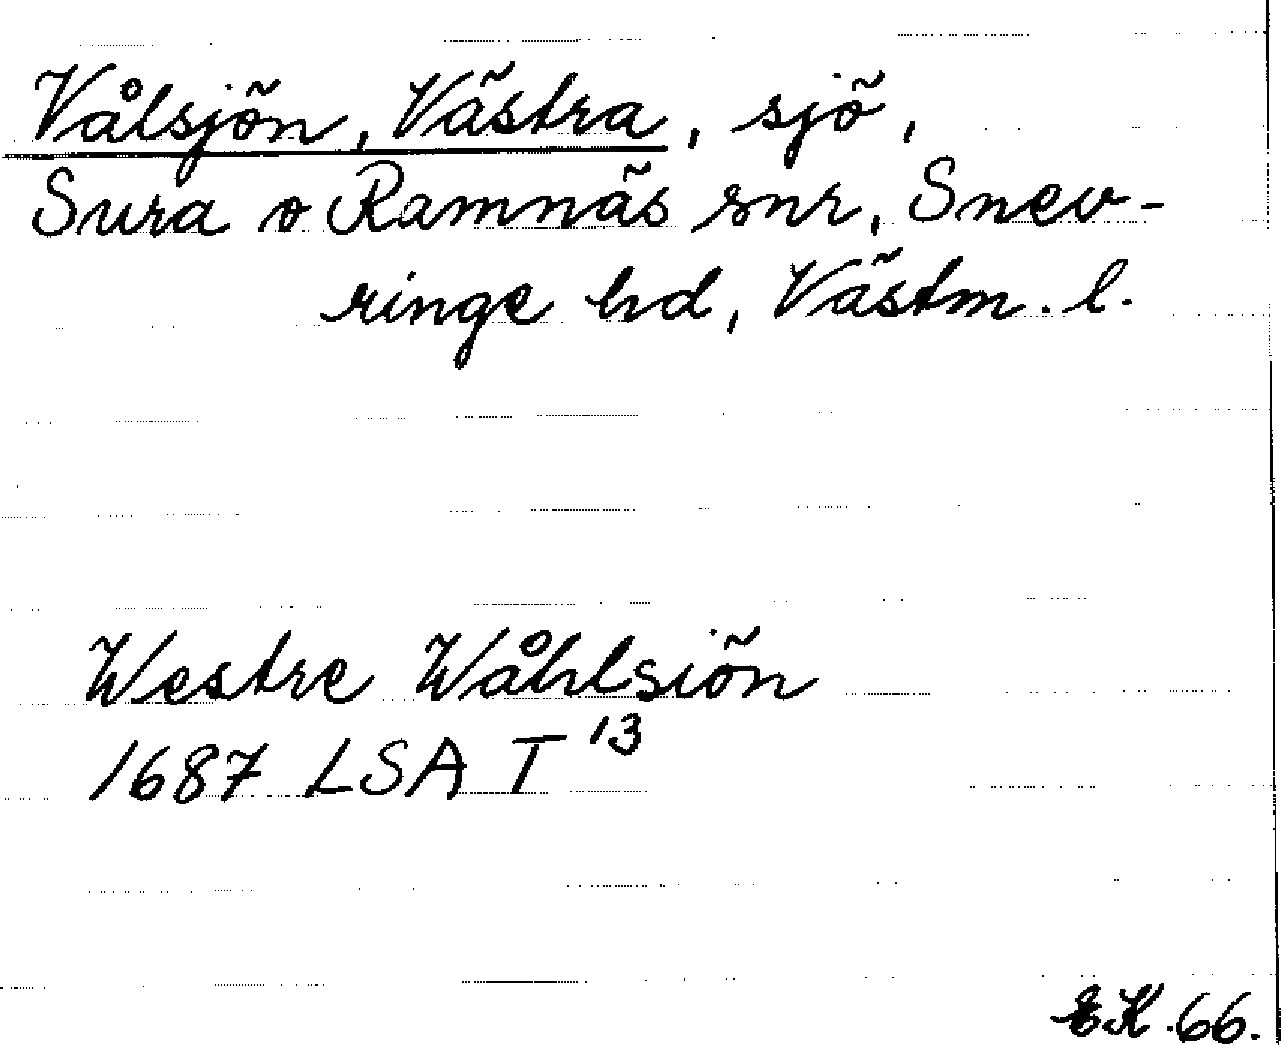 Vålsjön, Västra, sjö,
Sura o Ramnäs snr, Snev-
ringe hd, Västm. l.
Westre Wåhlsiön
1687 LSA T 13
EK. 66.